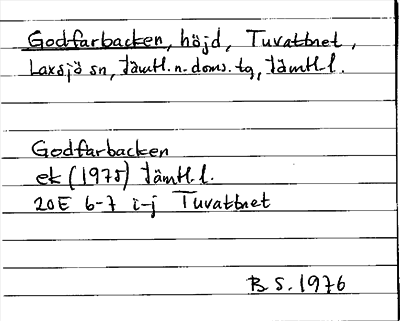 Godfarbacken, höjd, Tuvattnet,
Laxsjö sn, Jämtl. n. doms. tg, Jämtl. l.
Godfarbacken
ek (1975) Jämtl. l.
20E 6-7 i-j Tuvattnet
B S. 1976